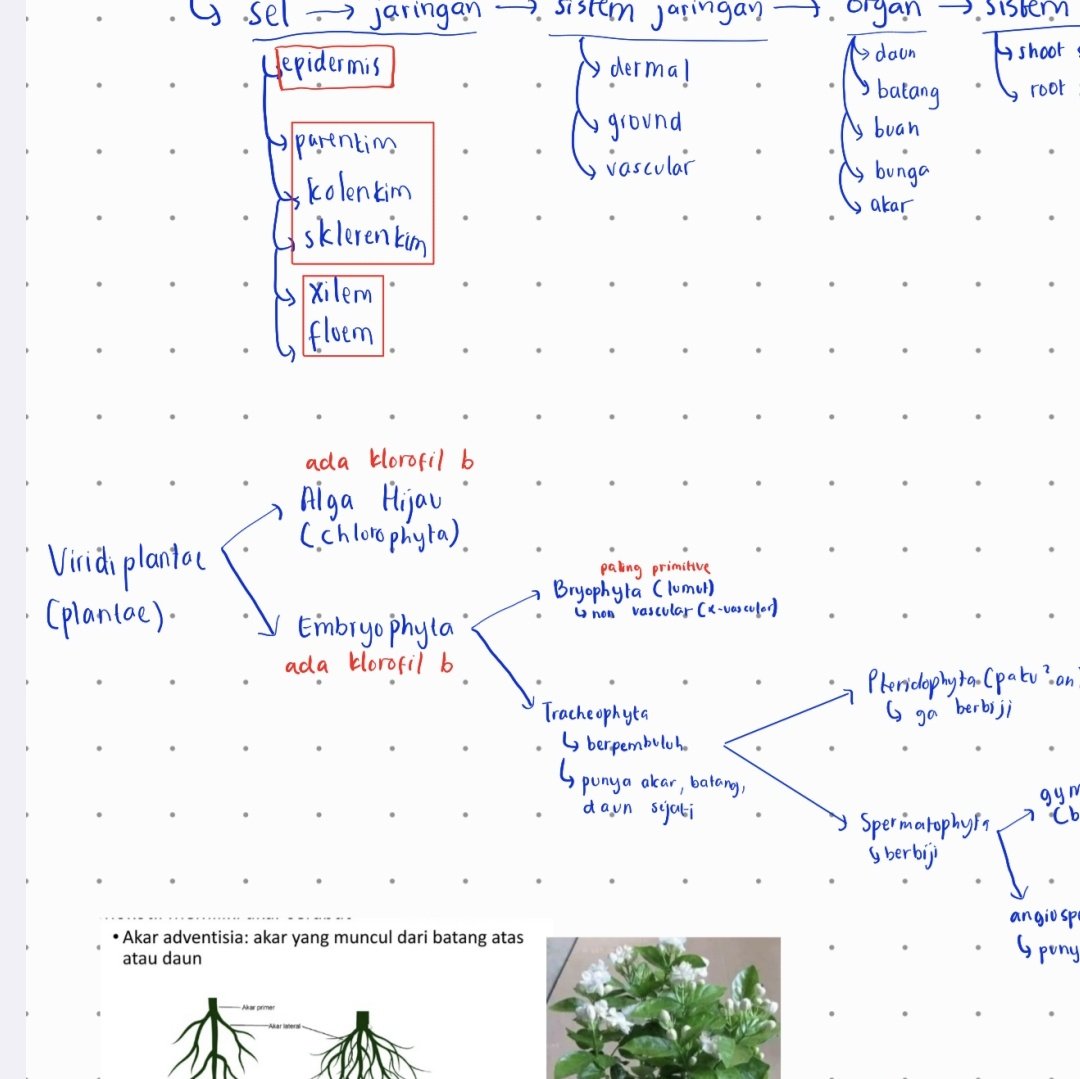 sel → jaringan → sistem jaringan → organ → sistem
epidermis
parenkim
kolenkim
sklerenkim
xilem
floem
dermal
ground
vascular
daun
batang
buah
bunga
akar
shoot
root
ada klorofil b
Alga Hijau
(chlorophyta)
Viridiplantae
(plantae)
Embryophyta
ada klorofil b
paling primitive
Bryophyta (lumut)
↳ non vascular (x-vascular)
Tracheophyta
↳ berpembuluh
↳ punya akar, batang,
daun sejati
Pteridophyta (paku²an
↳ ga berbiji
Spermatophyta
↳ berbiji
gym
(b
angiospe
↳ puny
• Akar adventisia: akar yang muncul dari batang atas
atau daun
Akar primer
Akar lateral